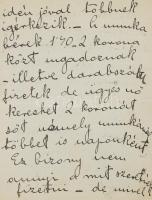 idén jóval többnek
igérkezik. – A munka
bérek 1.70–2 korona
közt ingadoznak
– illetve darabszámra
fizetek de ügyes nő
kereshet 2 koronát
sőt némely munkásnő
többet is naponként.
Ez bizony nem
annyi a mit szeretnék
fizetni – de minél